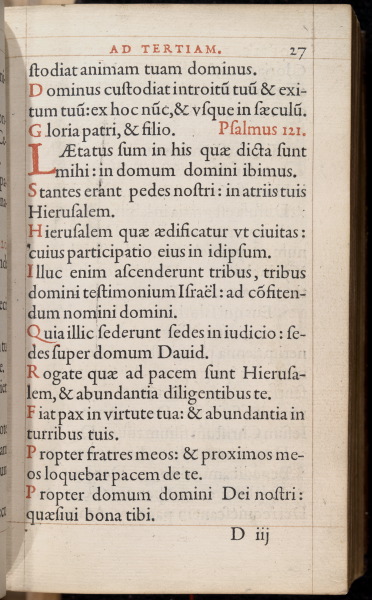 AD TERTIAM. 27
ſtodiat animam tuam dominus.
Dominus cuſtodiat introitũ tuũ & exi-
tum tuũ: ex hoc nũc, & vſque in ſæculũ.
Gloria patri, & filio. Pſalmus 121.
LÆtatus ſum in his quæ dicta ſunt
mihi: in domum domini ibimus.
Stantes erant pedes noſtri: in atriis tuis
Hieruſalem.
Hieruſalem quæ ædificatur vt ciuitas:
cuius participatio eius in idipſum.
Illuc enim aſcenderunt tribus, tribus
domini teſtimonium Iſraël: ad cõfiten-
dum nomini domini.
Quia illic ſederunt ſedes in iudicio: ſe-
des ſuper domum Dauid.
Rogate quæ ad pacem ſunt Hieruſa-
lem, & abundantia diligentibus te.
Fiat pax in virtute tua: & abundantia in
turribus tuis.
Propter fratres meos: & proximos me-
os loquebar pacem de te.
Propter domum domini Dei noſtri:
quæſiui bona tibi.
D iij